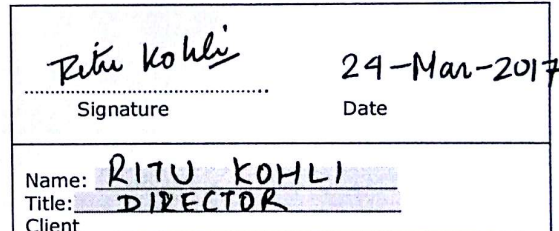 Ritu Kohli 24-Mar-2017
Signature Date
Name: RITU KOHLI
Title: DIRECTOR
Client